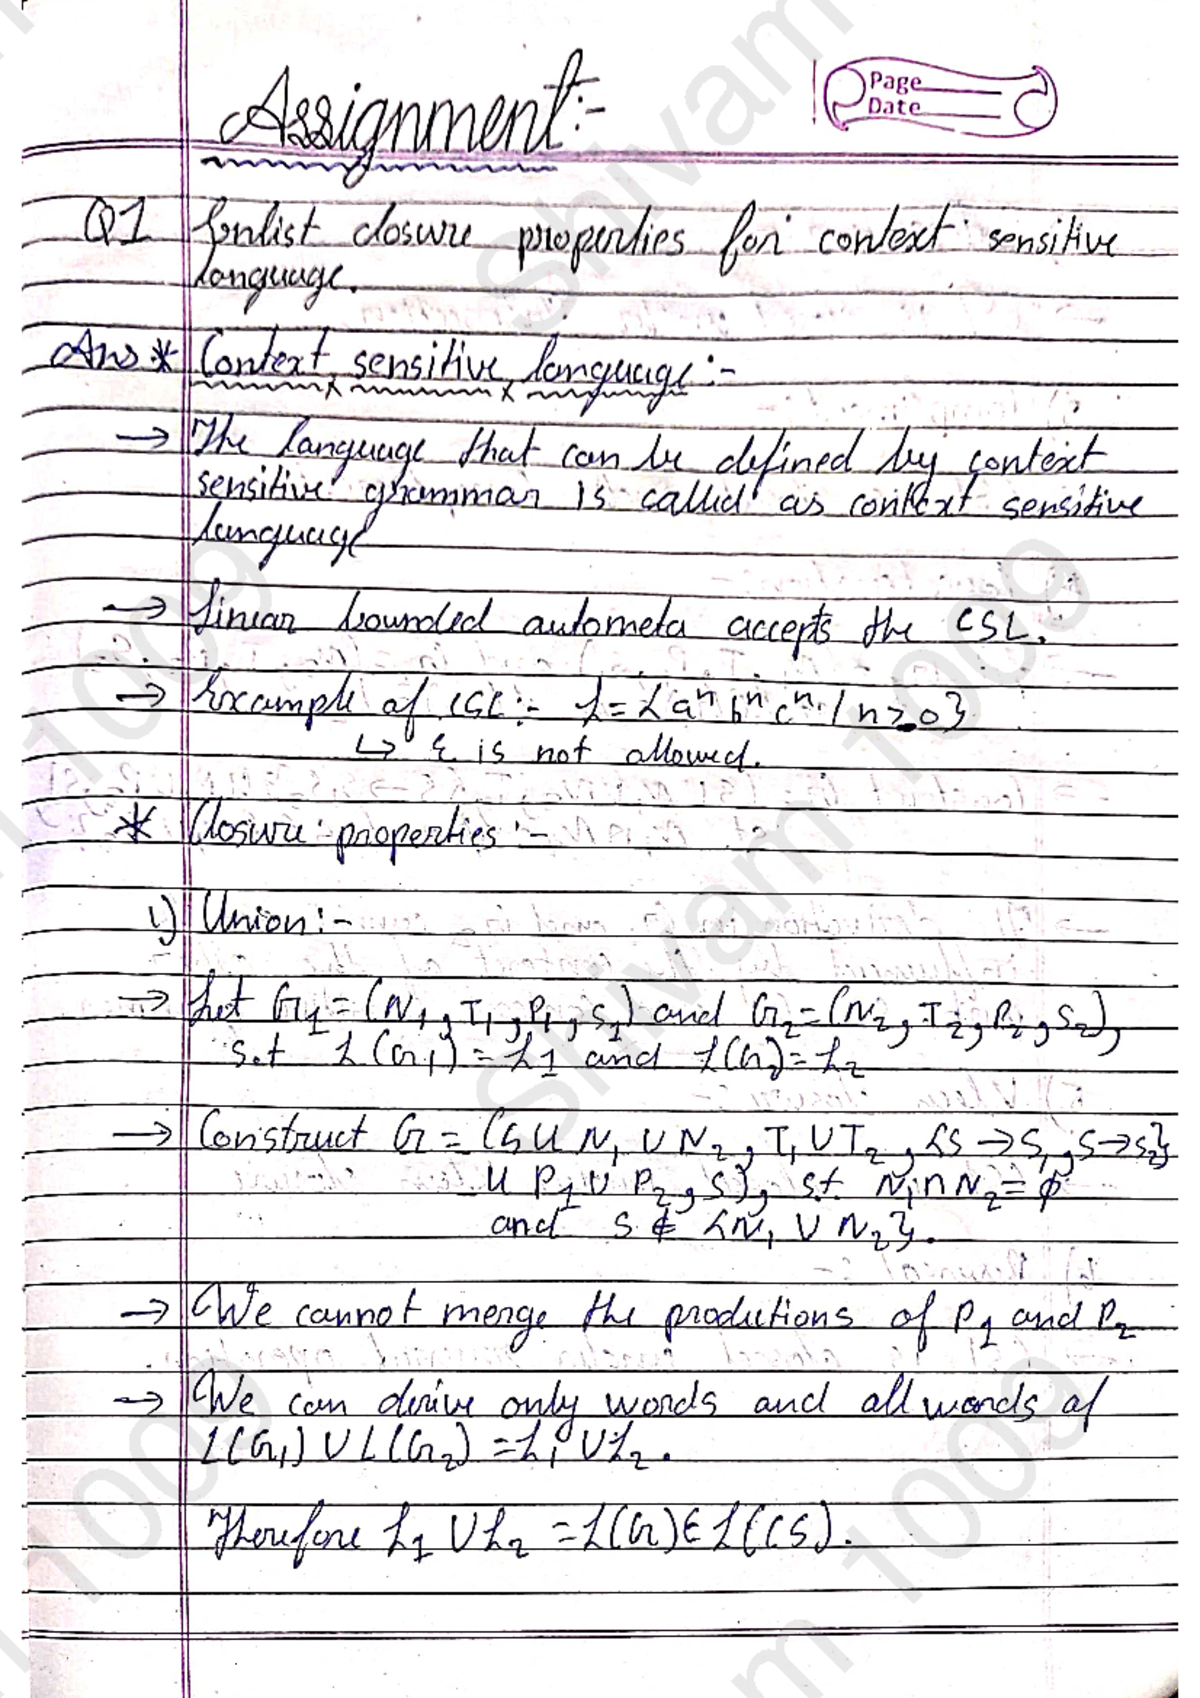 Assignment:-
Page
Date
Q1 Enlist closure properties for context sensitive
language.
Ans * Context sensitive language:-
→ The language that can be defined by context
sensitive grammar is called as context sensitive
language
→ Linear bounded autometa accepts the CSL.
→ Example of CSL:- L={aⁿbⁿcⁿ/n≥0}
↳ ε is not allowed.
* Closure properties:-
1) Union:-
→ Let G₁=(N₁,T₁,P₁,S₁) and G₂=(N₂,T₂,P₂,S₂),
s.t L(G₁)=L1 and L(G₂)=L₂
→ Construct G=(S∪N₁∪N₂,T₁∪T₂,{S→S₁,S→S₂}
∪P₁∪P₂,S), s.t N₁∩N₂=φ
and S∉{N₁∪N₂}.
→ We cannot merge the produtions of P₁ and P₂
→ We can derive only words and all words of
L(G₁)∪L(G₂)=L₁∪L₂.
Therefore L₁∪L₂=L(G)∈L(CS).
Shivam 1009